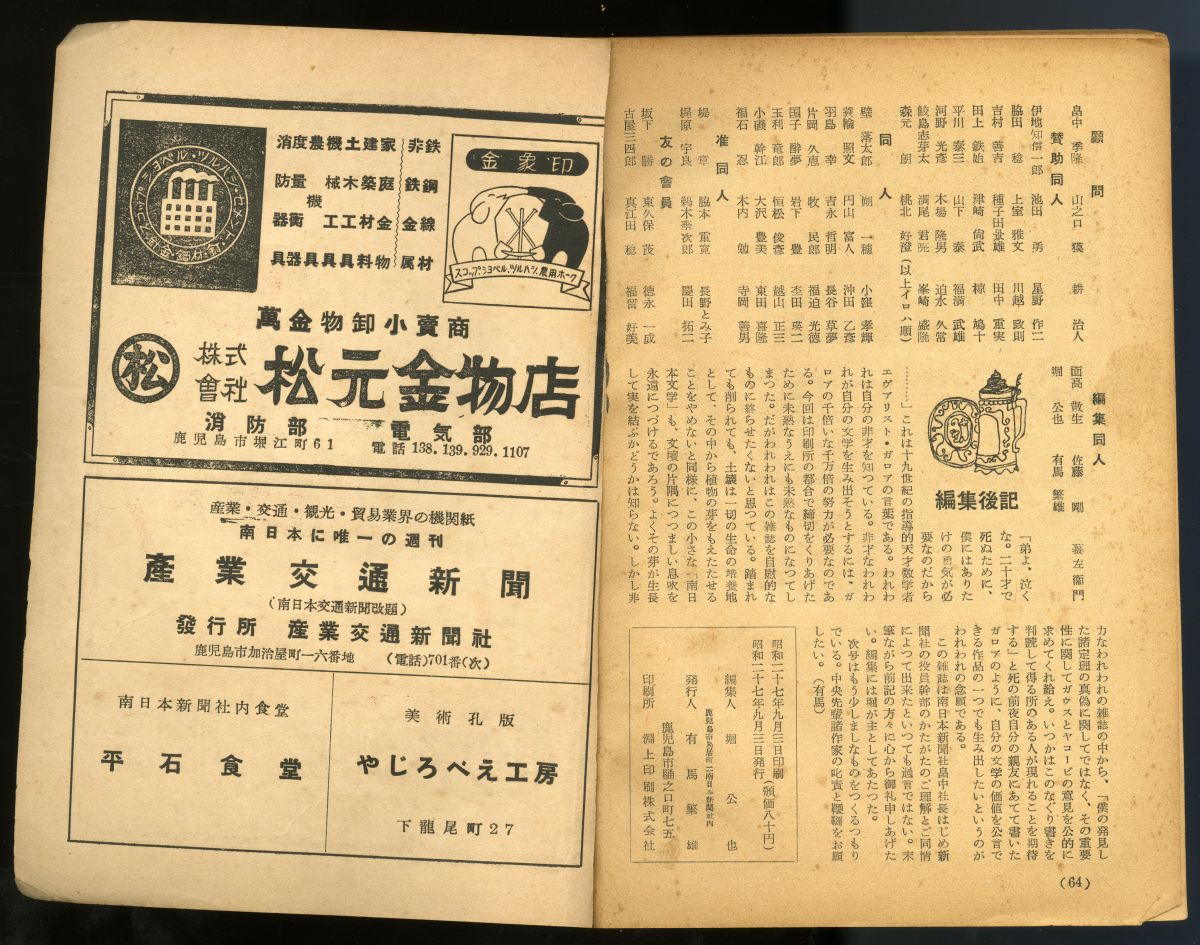 顧問
畠中季隆 山之口獏 耕治人
賛助同人
伊地知信一郎 池田勇 星野作二
脇田稔 上室雅文 川越政則
吉村善吉 種子田景雄 田中重実
田上鉄始 津崎尚武 椋鳩十
平川泰三 山下泰 福満武雄
河野光彦 木場隆男 迫水久常
鮫島志芽太 満尾君亮 峯崎盛隆
森元朗 桃北好澄 (以上イロハ順)
同人
壁落太郎 朔一穂 小窪孝輝
簑輪照文 円山富人 沖田乙彦
羽島幸 吉永哲明 長谷草夢
片岡久恵 牧民郎 福迫光徳
国子酔夢 岩下豊 杢田瑛二
玉利竜郎 恒松俊彦 越山正三
小磯幹江 大沢豊美 東田喜隆
福石忍 木内勉 寺岡善男
准同人
堤章 脇本重寛 長野とみ子
梶原宇良 鵜木奈次郎 墨田拓二
友の會員
坂下勝 東久保茂 徳永一成
古屋三四郎 真江田稔 福留好美
編集同人
面高散生 佐藤剛
堀公也 有馬繁雄
編集後記
「弟よ、泣く
な。二十才で
死ぬために、
僕にはありた
けの勇気が必
要なのだから
………」これは十九世紀の指導的天才数学者
エヴアリスト・ガロアの言葉である。われわ
れは自分の非才を知つている。非才なわれわ
れが自分の文学を生み出そうとするには、ガ
ロアの千倍いな千万倍の努力が必要なのであ
る。今回は印刷所の都合で締切をくりあげた
ために未熟なうえにも未熟なものになつてし
まつた。だがわれわれはこの雑誌を自慰的な
ものに終らせたくないと思つている。踏まれ
ても削られても、土壌は一切の生命の培養地
として、その中から植物の芽をもえたたせる
ことをやめないと同様に、この小さな「南日
本文学」も、文壇の片隅につつましい息吹を
永遠につづけるであろう。よくその芽が生長
して実を結ぶかどうかは知らない。しかし非
力なわれわれの雑誌の中から、「僕の発見し
た諸定理の真偽に関してではなく、その重要
性に関してガウスとヤコービの意見を公的に
求めてくれ給え。いつかはこのなぐり書きを
判読して得る所のある人が現れることを期待
する」と死の前夜自分の親友にあてて書いた
ガロアのように、自分の文学の価値を公言で
きる作品の一つでも生み出したいというのが
われわれの念願である。
この雑誌は南日本新聞社畠中社長はじめ新
聞社の役員幹部のかたがたのご理解とご同情
によつて出来たといつても過言ではない。末
筆ながら前記の方々に心から御礼申しあげた
い。編集には堀が主としてあたつた。
次号はもう少しましなものをつくるつもり
でいる。中央先輩諸作家の叱責と鞭韃をお願
したい。(有馬)
昭和二十七年九月三日印刷
昭和二十七年九月三日発行 (領価八十円)
編集人 堀公也
発行人 有馬繁雄
鹿児島市樋之口町七五
印刷所 淵上印刷株式会社
(64)
金象印
スコップシヨベル、ツルハシ、農用ホーク
鉄鋼線材
非鉄金属
家庭金物
建築材料
土木工具
機械工具
農機具
度量衡器
消防器具
萬金物卸小賣商
松
株式會社 松元金物店
消防部 電気部
鹿児島市堀江町61 電話 138.139.929.1107
産業・交通・観光・貿易業界の機関紙
南日本に唯一の週刊
産業交通新聞
(南日本交通新聞改題)
發行所 産業交通新聞社
鹿児島市加治屋町一六番地 (電話)701番(次)
南日本新聞社内食堂
平石食堂
美術孔版
やじろべえ工房
下龍尾町27